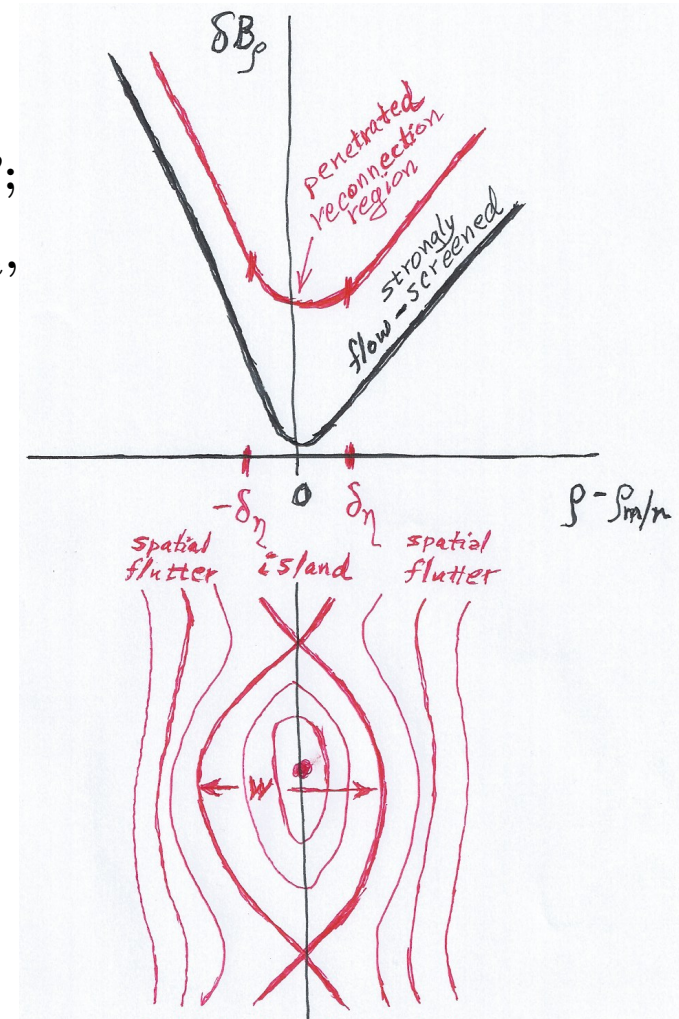 δB_ρ
;
,
penetrated
reconnection
region
strongly
flow-screened
-δ_η
0
δ_η
ρ-ρ_m/n
spatial
flutter
island
spatial
flutter
W